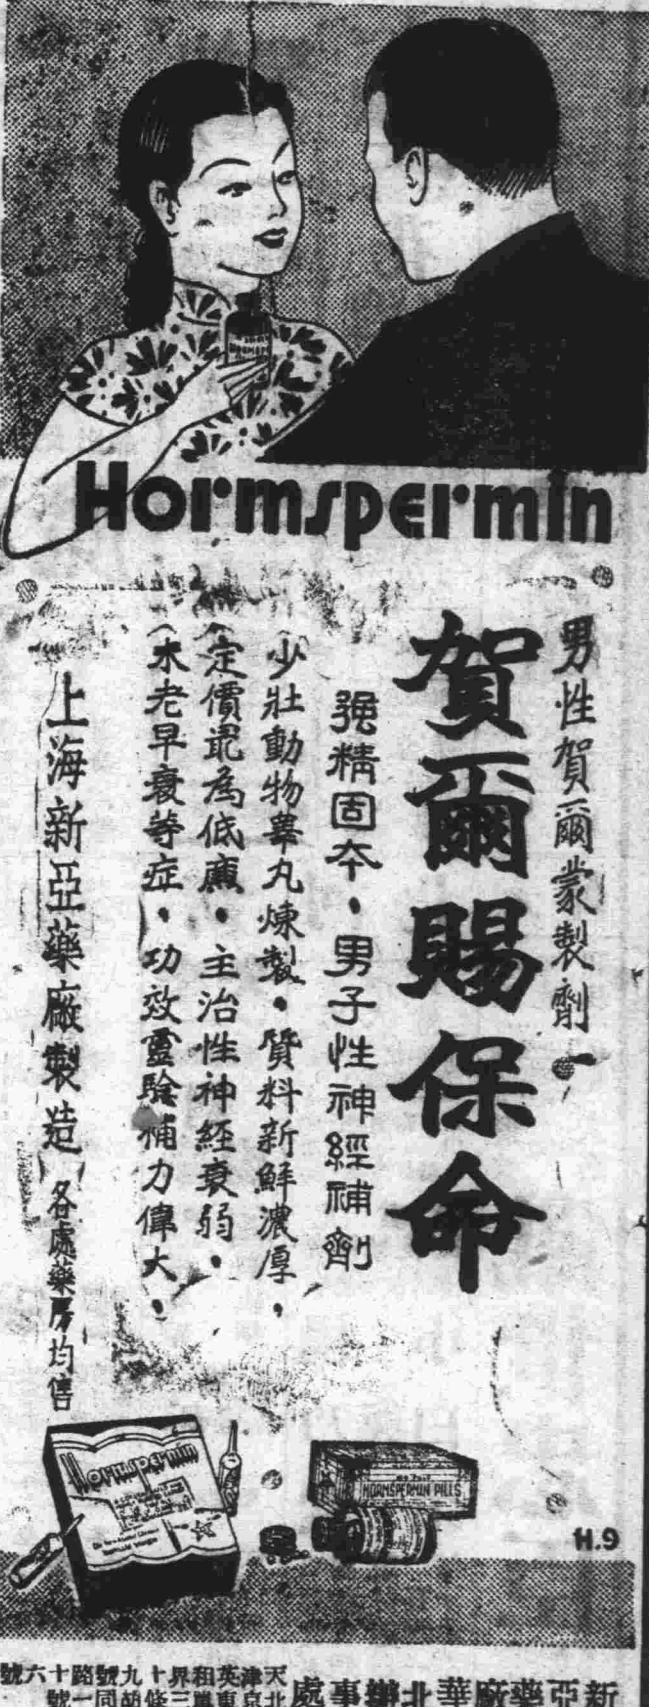 Hormspermin
男性賀爾蒙製劑一
賀爾賜保命
強精固本，男子性神經補劑
少壯動物睾丸煉製，質料新鮮濃厚，
定價最為低廉，主治性神經衰弱，
未老早衰等症，功效靈驗補力偉大，
上海新亞藥廠製造 各處藥房均售
Hormspermin
HORMSPERMIN PILLS
H.9
新亞藥廠華北辦事處